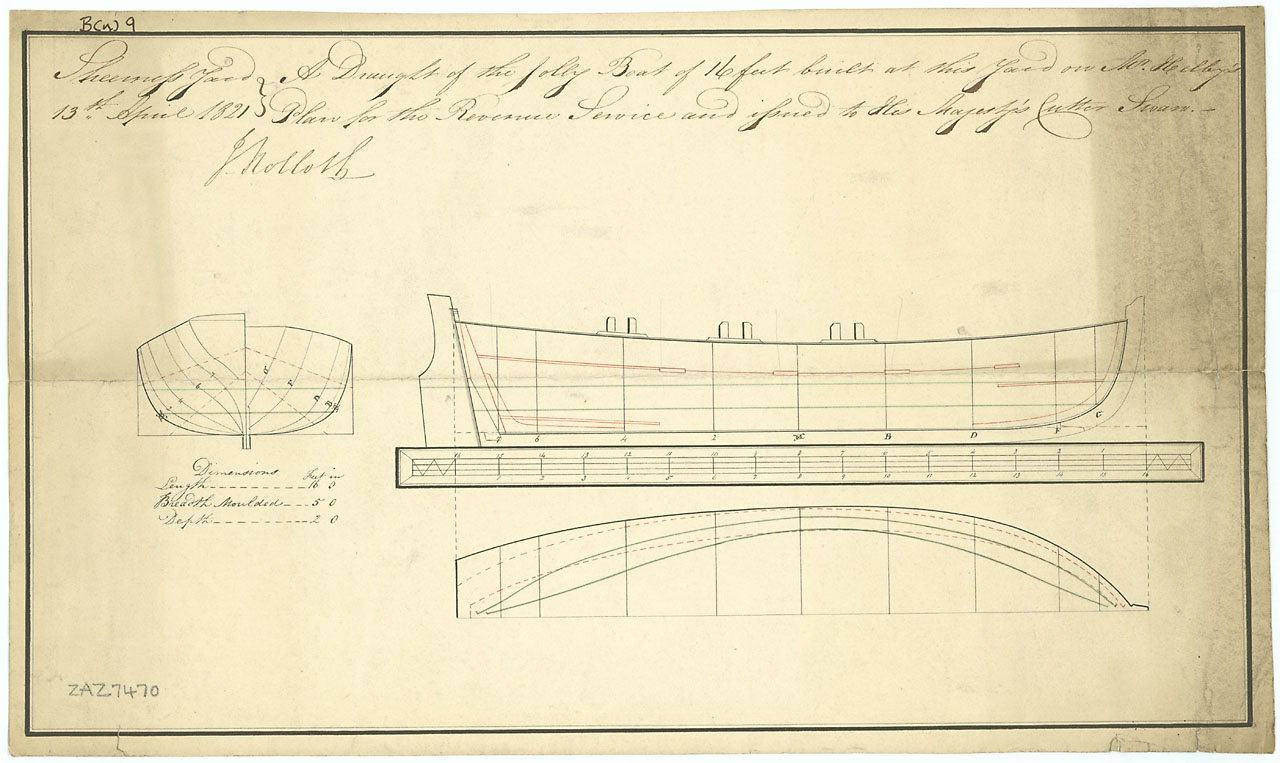 B(n) 9
Sheerness Yard } A Draught of the Jolly Boat of 16 feet built at this Yard on Mr. Hilby's
13th. April 1821 } Plan for the Revenue Service and issued to His Majesty's Cutter Swan.
J. Nolloth
7 6 4 2 B D F G
16 15 14 13 12 11 10 9 8 7 6 5 4 3 2 1
1 2 3 4 5 6 7 8 9 10 11 12 13 14 15 16
Dimensions Feet in
Length 16 0
Breadth Moulded 5 0
Depth 2 0
ZAZ7470